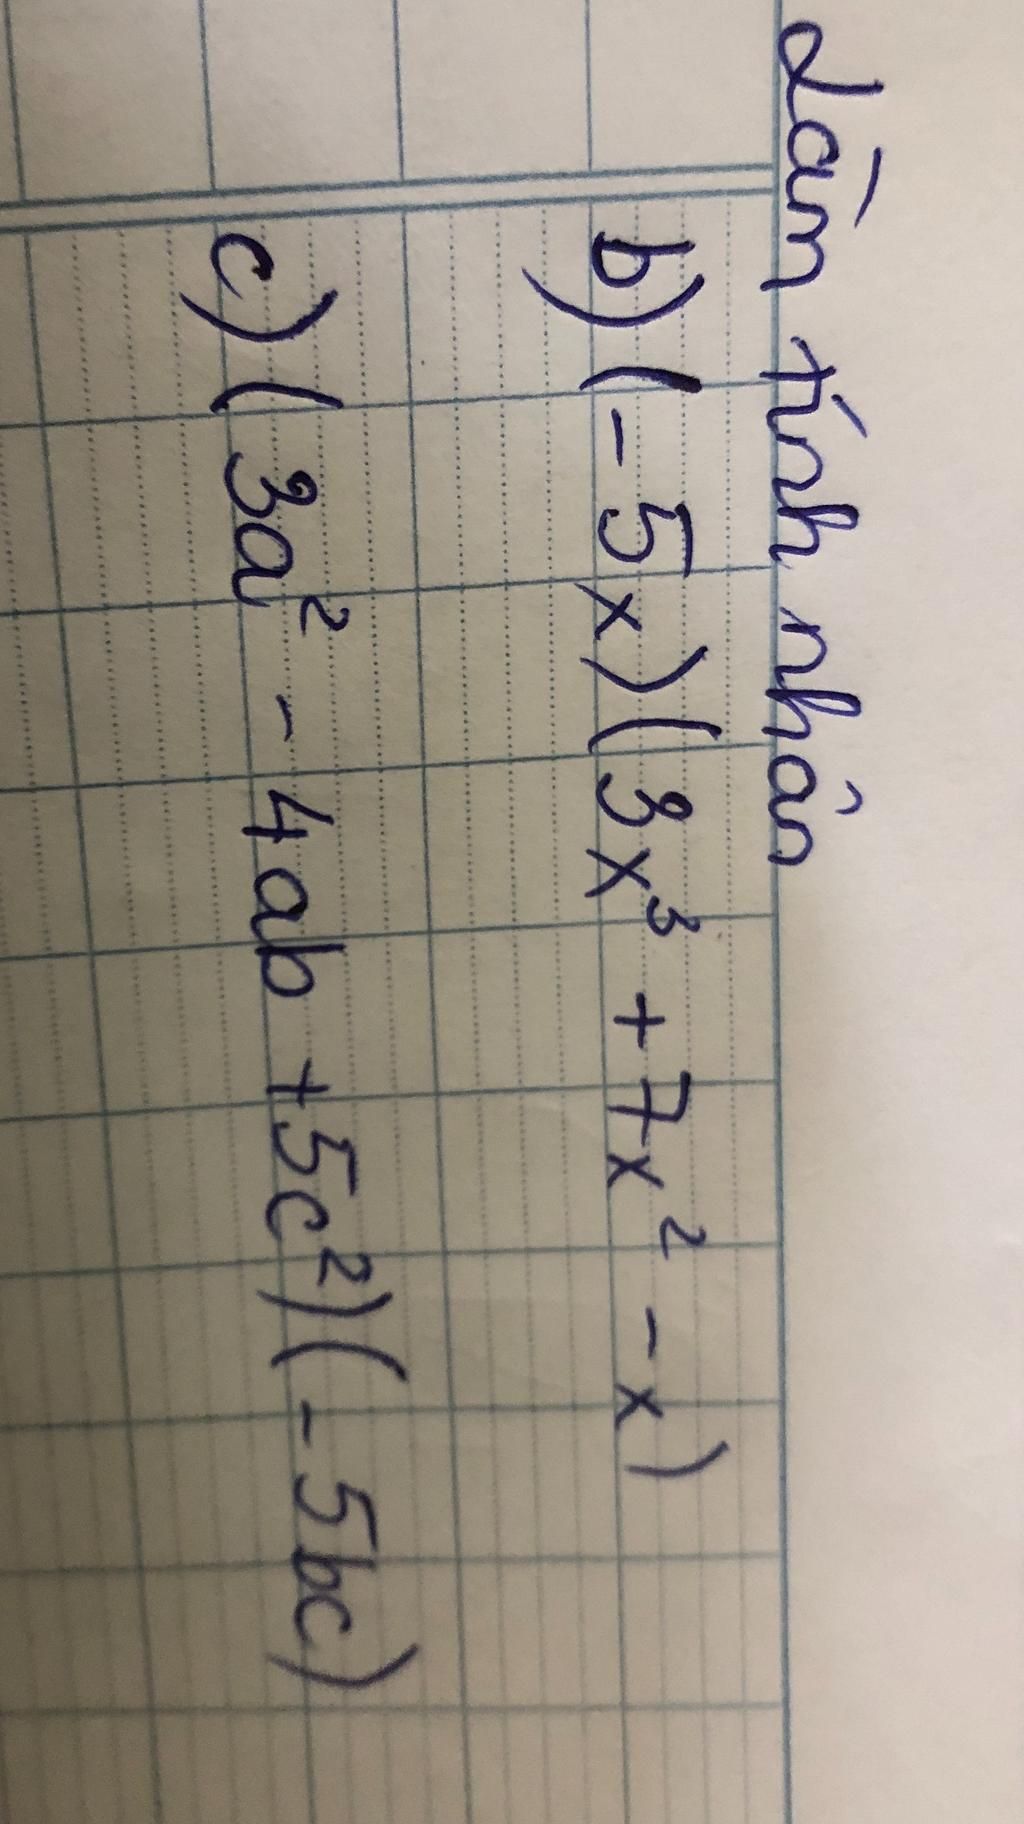 Làm tính nhân
b) (-5x)(3x³ + 7x² - x)
c) (3a² - 4ab + 5c²)(-5bc)